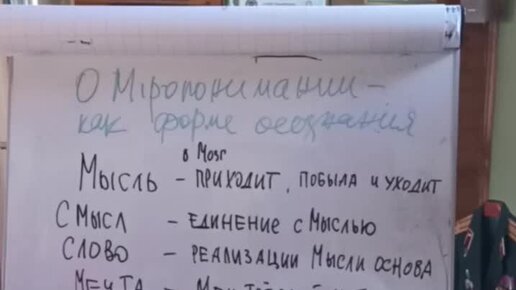 О Мiропонимании –
как форме осознания
в Мозг
Мысль – приходит, побыла и уходит
Смысл – единение с Мыслью
Слово – реализации Мысли основа
Мечта –